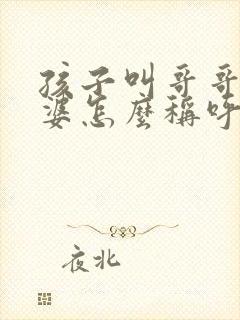 孩子叫哥哥
婆怎麼稱呼
夜北